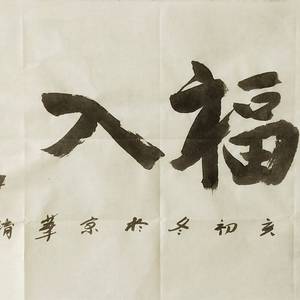 福入
亥初冬於京華